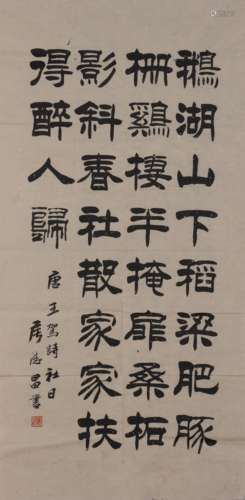 鵝湖山下稻梁肥豚
柵鷄棲半掩扉桑柘
影斜春社散家家扶
得醉人歸
唐王駕詩社日
侯德昌書